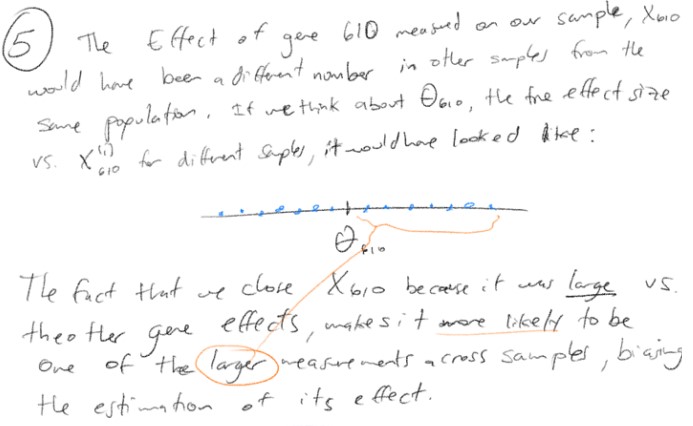 5 The Effect of gene 610 measured on our sample, X610
would have been a different number in other samples from the
same population. If we think about θ610, the true effect size
vs. X(i)610 for different samples, it would have looked like:
θ610
The fact that we chose X610 because it was large vs.
the other gene effects, makes it more likely to be
one of the larger measurements across samples, biasing
the estimation of its effect.